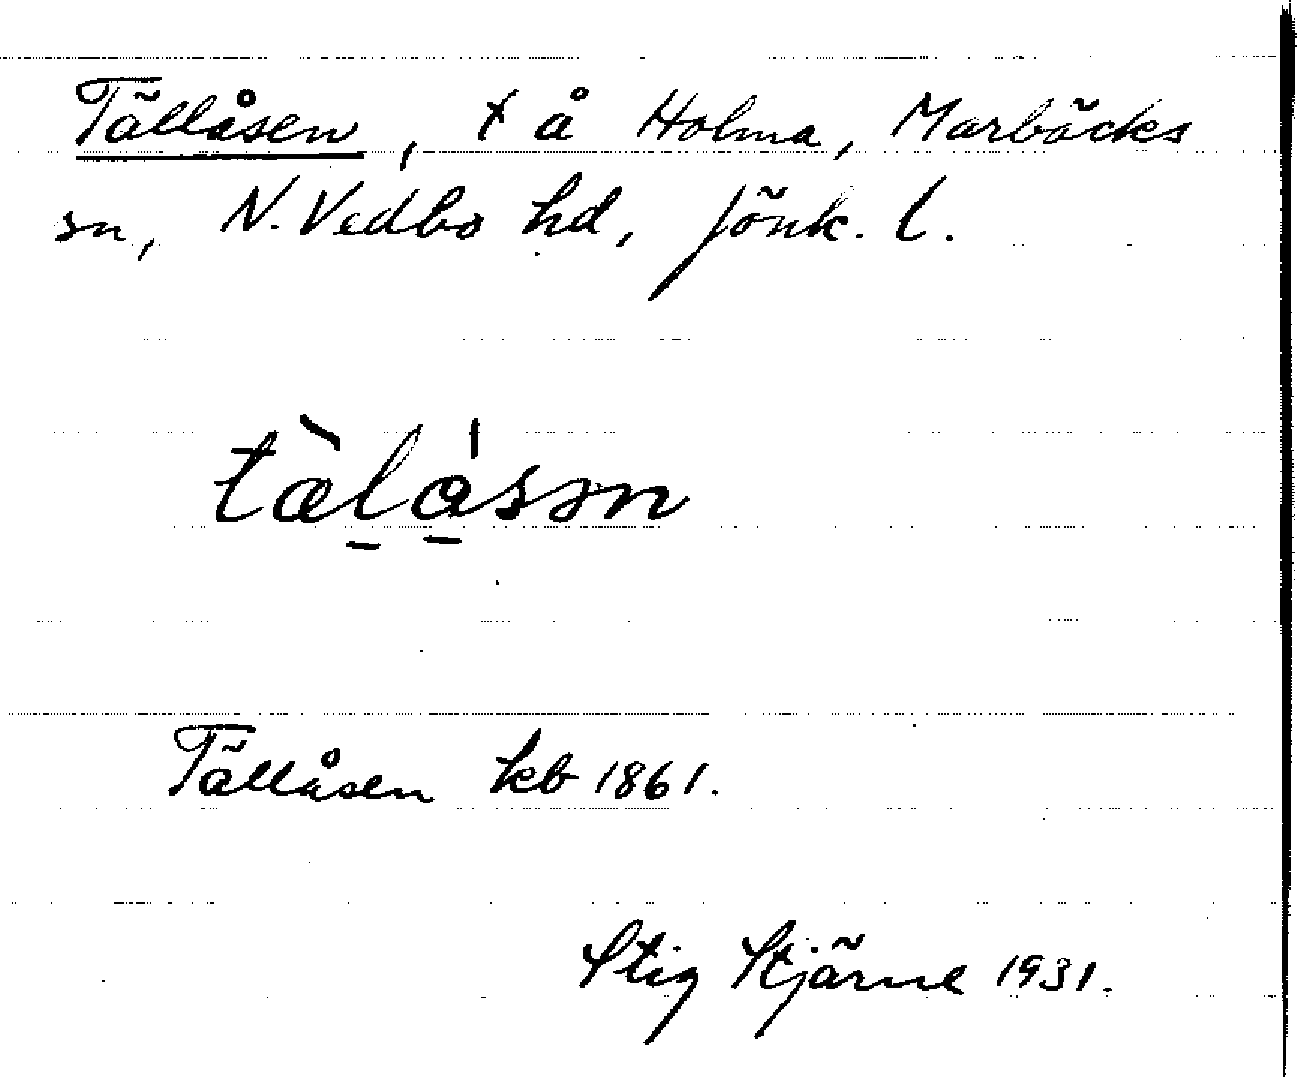 Tällåsen, † å Holma, Marbäcks
sn, N. Vedbo hd, Jönk. l.
tæ̀lå̍sən
Tällåsen kb 1861.
Stig Stjärne 1931.